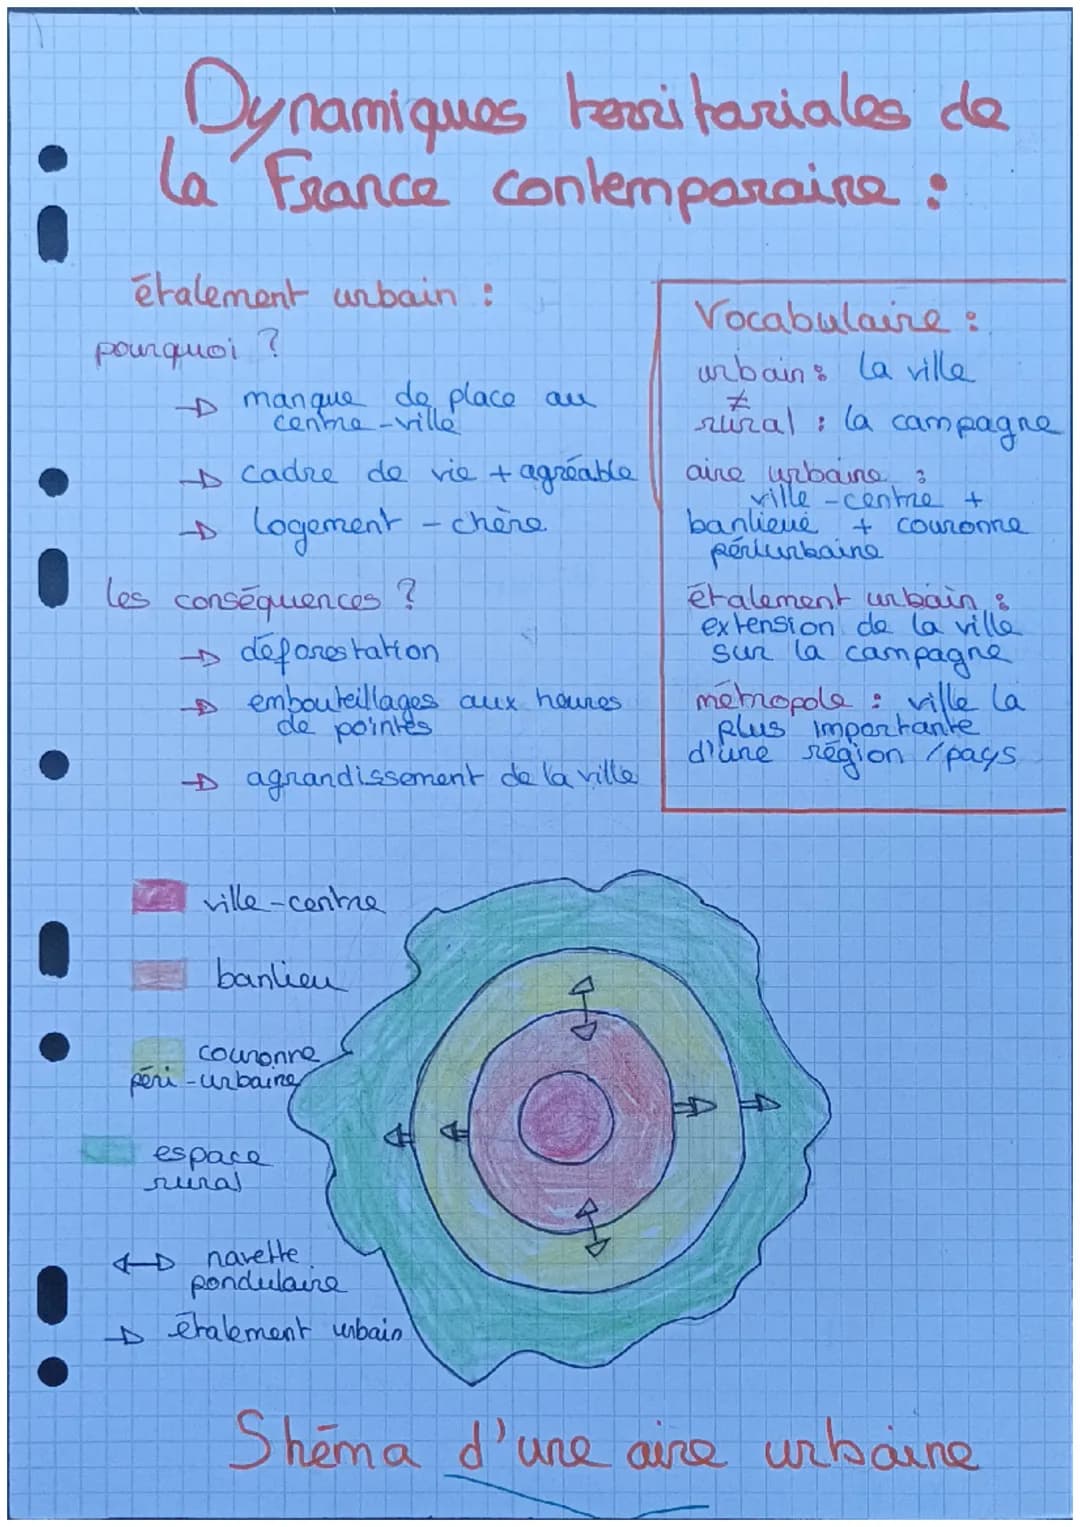 Dynamiques territoriales de
la France contemporaine :
étalement urbain :
pourquoi ?
→ manque de place au
centre-ville
→ cadre de vie + agréable
→ logement - chère
les conséquences ?
→ déforestation
→ embouteillages aux heures
de pointes
→ agrandissement de la ville
Vocabulaire :
urbain : la ville
≠
rural : la campagne
aire urbaine :
ville-centre +
banlieue + couronne
périurbaine
étalement urbain :
extension de la ville
sur la campagne
métropole : ville la
plus importante
d'une région / pays
ville-centre
banlieu
couronne
péri-urbaine
espace
rural
↔ navette
pendulaire
→ étalement urbain
Shéma d'une aire urbaine